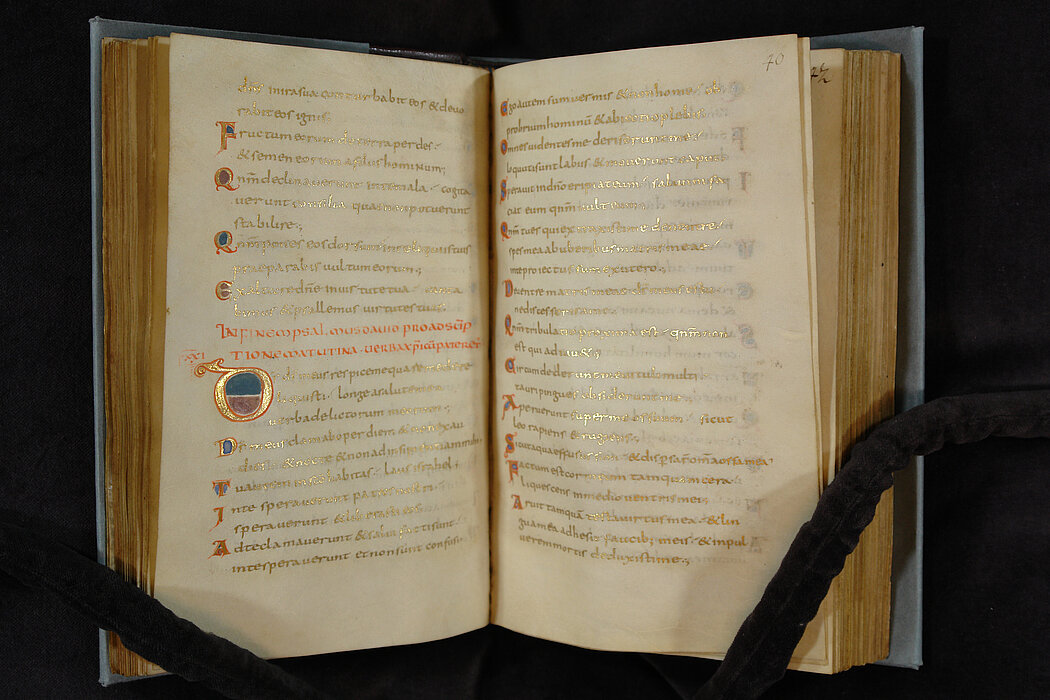 dn̄s in ira sua conturbabit eos & devo
rabit eos ignis
Fructum eorum de terra perdes.
& semen eorum a filiis hominum;
Qnm̄ declinaverunt in te mala. cogita
verunt consilia quae non potuerunt
stabilire;
Qnm̄ pones eos dorsum in reliquiis tuis
praeparabis vultum eorum;
Exaltare dn̄e in virtute tua
& psallemus virtutes tuas
IN FINEM PSALMUS DAVID PRO ADSUMP
XXI TIONE MATUTINA VERBA
DS̄ ds̄ meus respice in me quare me dere
liquisti. longe a salute mea
verba delictorum meorum;
Ds̄ meus clamabo per diem & non exau
dies. & nocte & non ad insipientiam mihi
Tu autem in sc̄o habitas. laus israhel
In te speraverunt patres nostri
speraverunt & liberasti eos
Ad te clamaverunt & salvi facti sunt
in te speraverunt et non sunt confusi
70
72
Ego autem sum vermis & non homo
probrum hominum & abiectio plebis
Omnes videntes me deriserunt me
locuti sunt labiis & moverunt caput
Speravit in dn̄o eripiat eum. salvum fa
ciat eum qnm̄ vult eum
Qnm̄ tu es qui extraxisti me de ventre
spes mea ab uberibus matris meae
in te proiectus sum ex utero;
De ventre matris meae ds̄ meus es tu
ne discesseris a me
Qnm̄ tribulatio proxima est. qnm̄ non
est qui adiuv&;
Circumdederunt me vituli multi
tauri pingues obsederunt me
Aperuerunt super me os suum. sicut
leo rapiens & rugiens;
Sicut aqua effusus sum. & dispersa sn̄ om̄a ossa mea
Factum est cor meum tamquam cera
liquescens in medio ventris mei;
Aruit tamquā testa virtus mea. & lin
gua mea adhesit faucib; meis. & in pul
verem mortis deduxisti me;